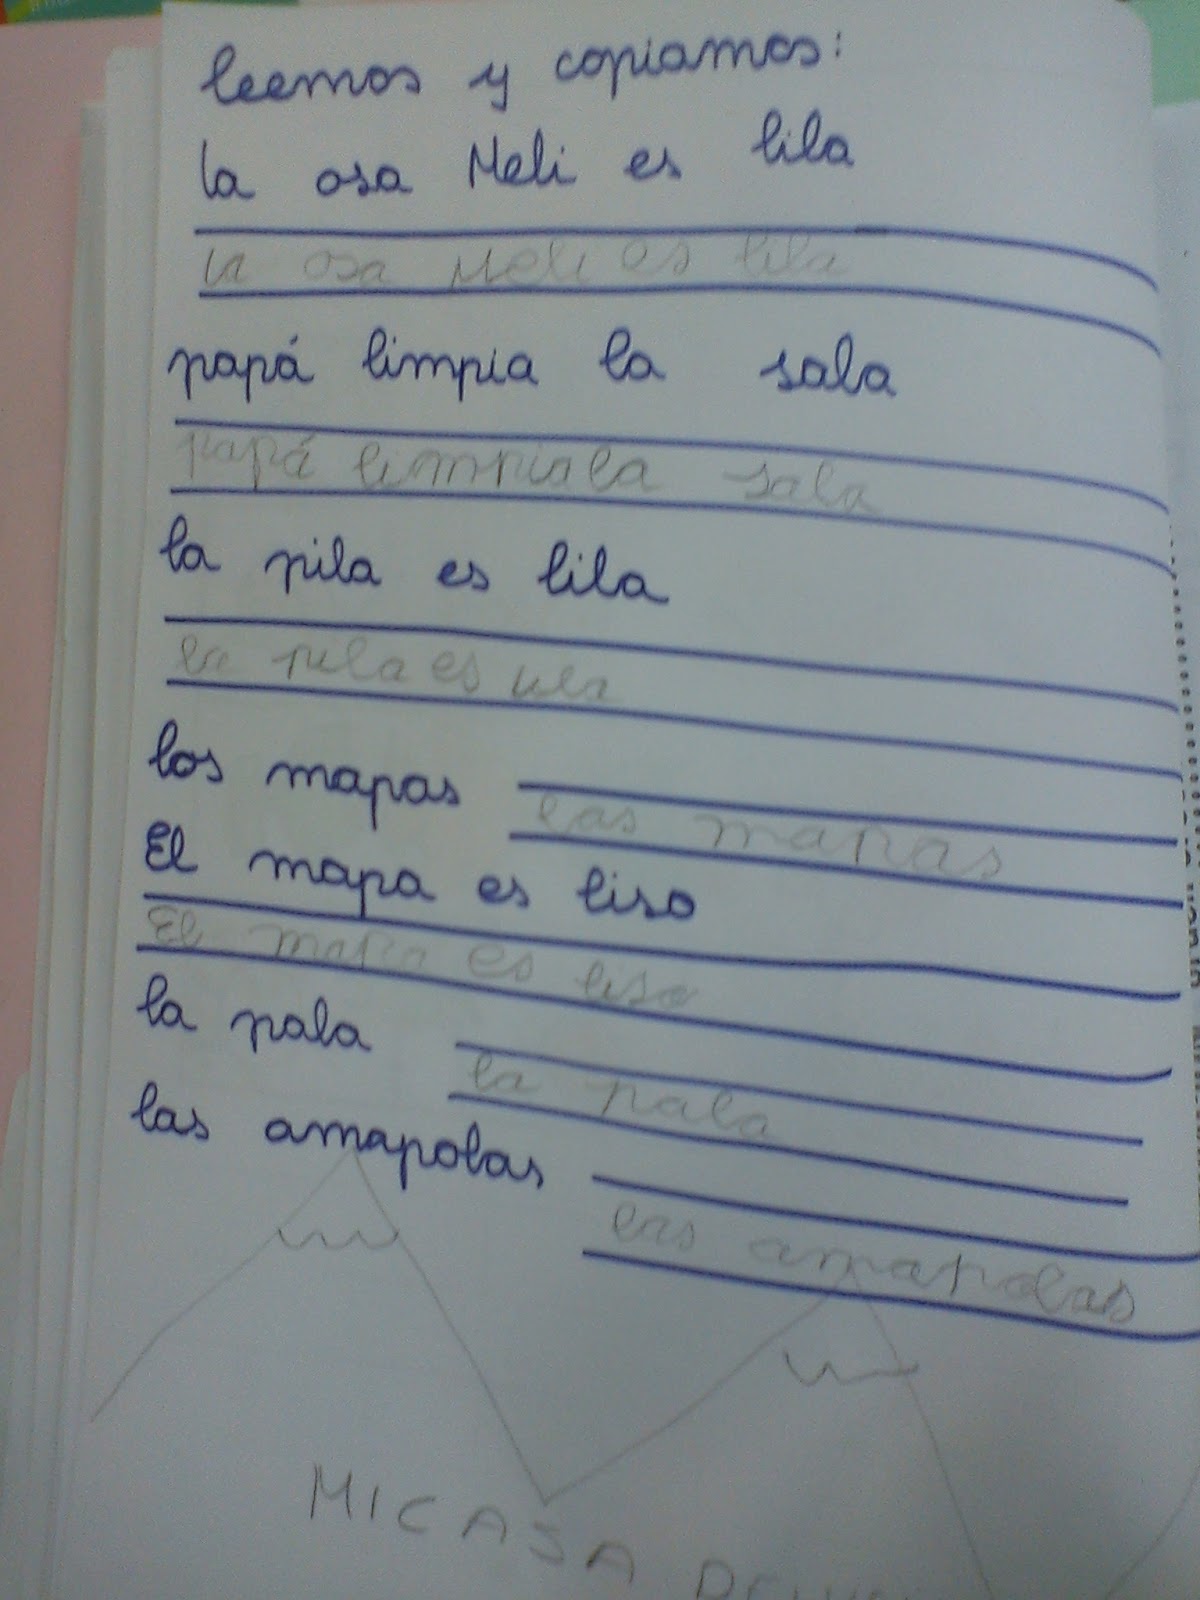 leemos y copiamos:
la osa Meli es lila
la osa Meli es lila
papá limpia la sala
papá limpia la sala
la pila es lila
la pila es lila
los mapas
las mapas
El mapa es liso
El mapa es liso
la pala
la pala
las amapolas
las amapolas
MI CASA